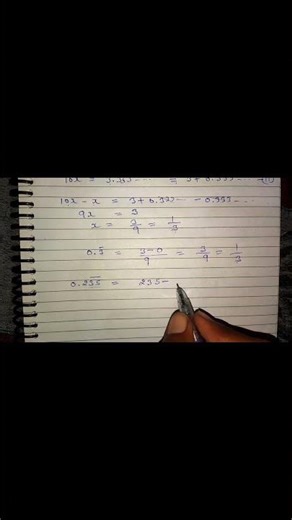 10x = 3.333... = 3 + 0.333...
10x - x = 3 + 0.333... - 0.333...
9x = 3
x = 3/9 = 1/3
0.3̅ = 3-0/9 = 3/9 = 1/3
0.23̅5̅ = 235-